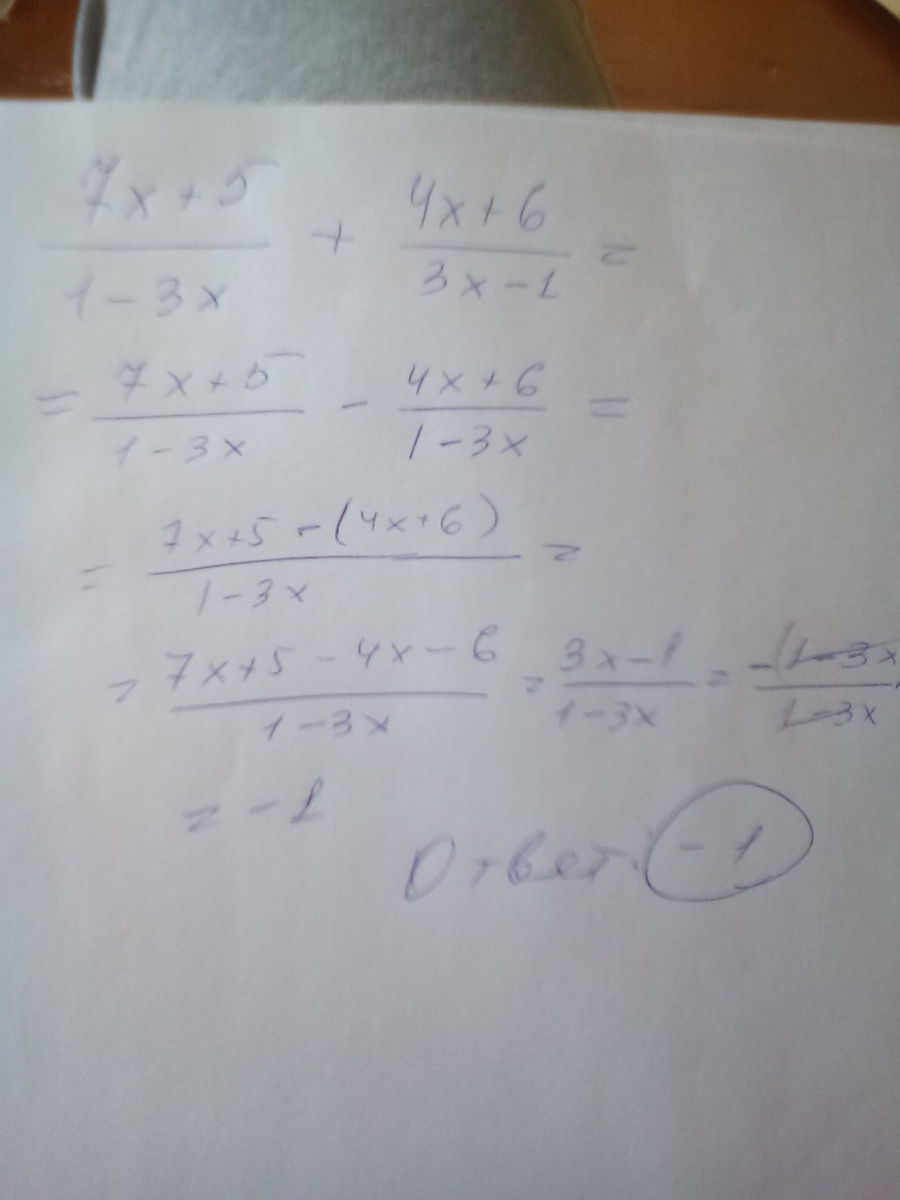 7x+5 / 1-3x + 4x+6 / 3x-1 =
= 7x+5 / 1-3x - 4x+6 / 1-3x =
= 7x+5-(4x+6) / 1-3x =
= 7x+5-4x-6 / 1-3x = 3x-1 / 1-3x = -(1-3x / 1-3x
= -1
Ответ: -1